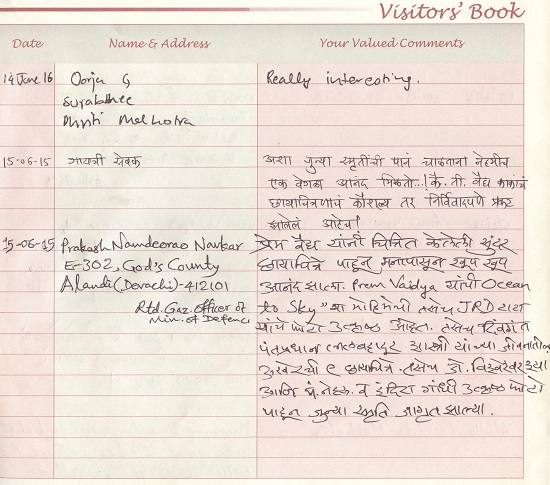 Visitors' Book
Date Name & Address Your Valued Comments
14 June 16 Oorja G Really interesting.
Surabhee
Mushti Melhotra
15-06-15 गायत्री सेवक अशा जुन्या स्मृतींची पानं चाळताना नेहमीच
एक वेगळा आनंद मिळतो..! कै. ती. वैद्य काकांचं
छायाचित्रणाचं कौशल्य तर निर्विवादपणे प्रकट
झालेलं आहेच!
15-06-15 Prakash Namdeorao Navkar प्रेम वैद्य यांनी चित्रित केलेली सुंदर
E-302, God's County छायाचित्रे पाहून मनापासून खूप खूप
Alandi (Devachi)-412101 आनंद झाला. Prem Vaidya यांची Ocean
Rtd. Gaz. Officer of to Sky" या मोहिमेची तसेच JRD टाटा
Min. of Defence यांचे फोटो उत्कृष्ठ आहेत. तसेच दिवंगत
पंतप्रधान लालबहादूर शास्त्री यांच्या जीवनातील
अखेरची ९ छायाचित्रे. तसेच
आणि पं. नेहरू व इंदिरा गांधी उत्कृष्ठ फोटो
पाहून जुन्या स्मृति जागृत झाल्या.